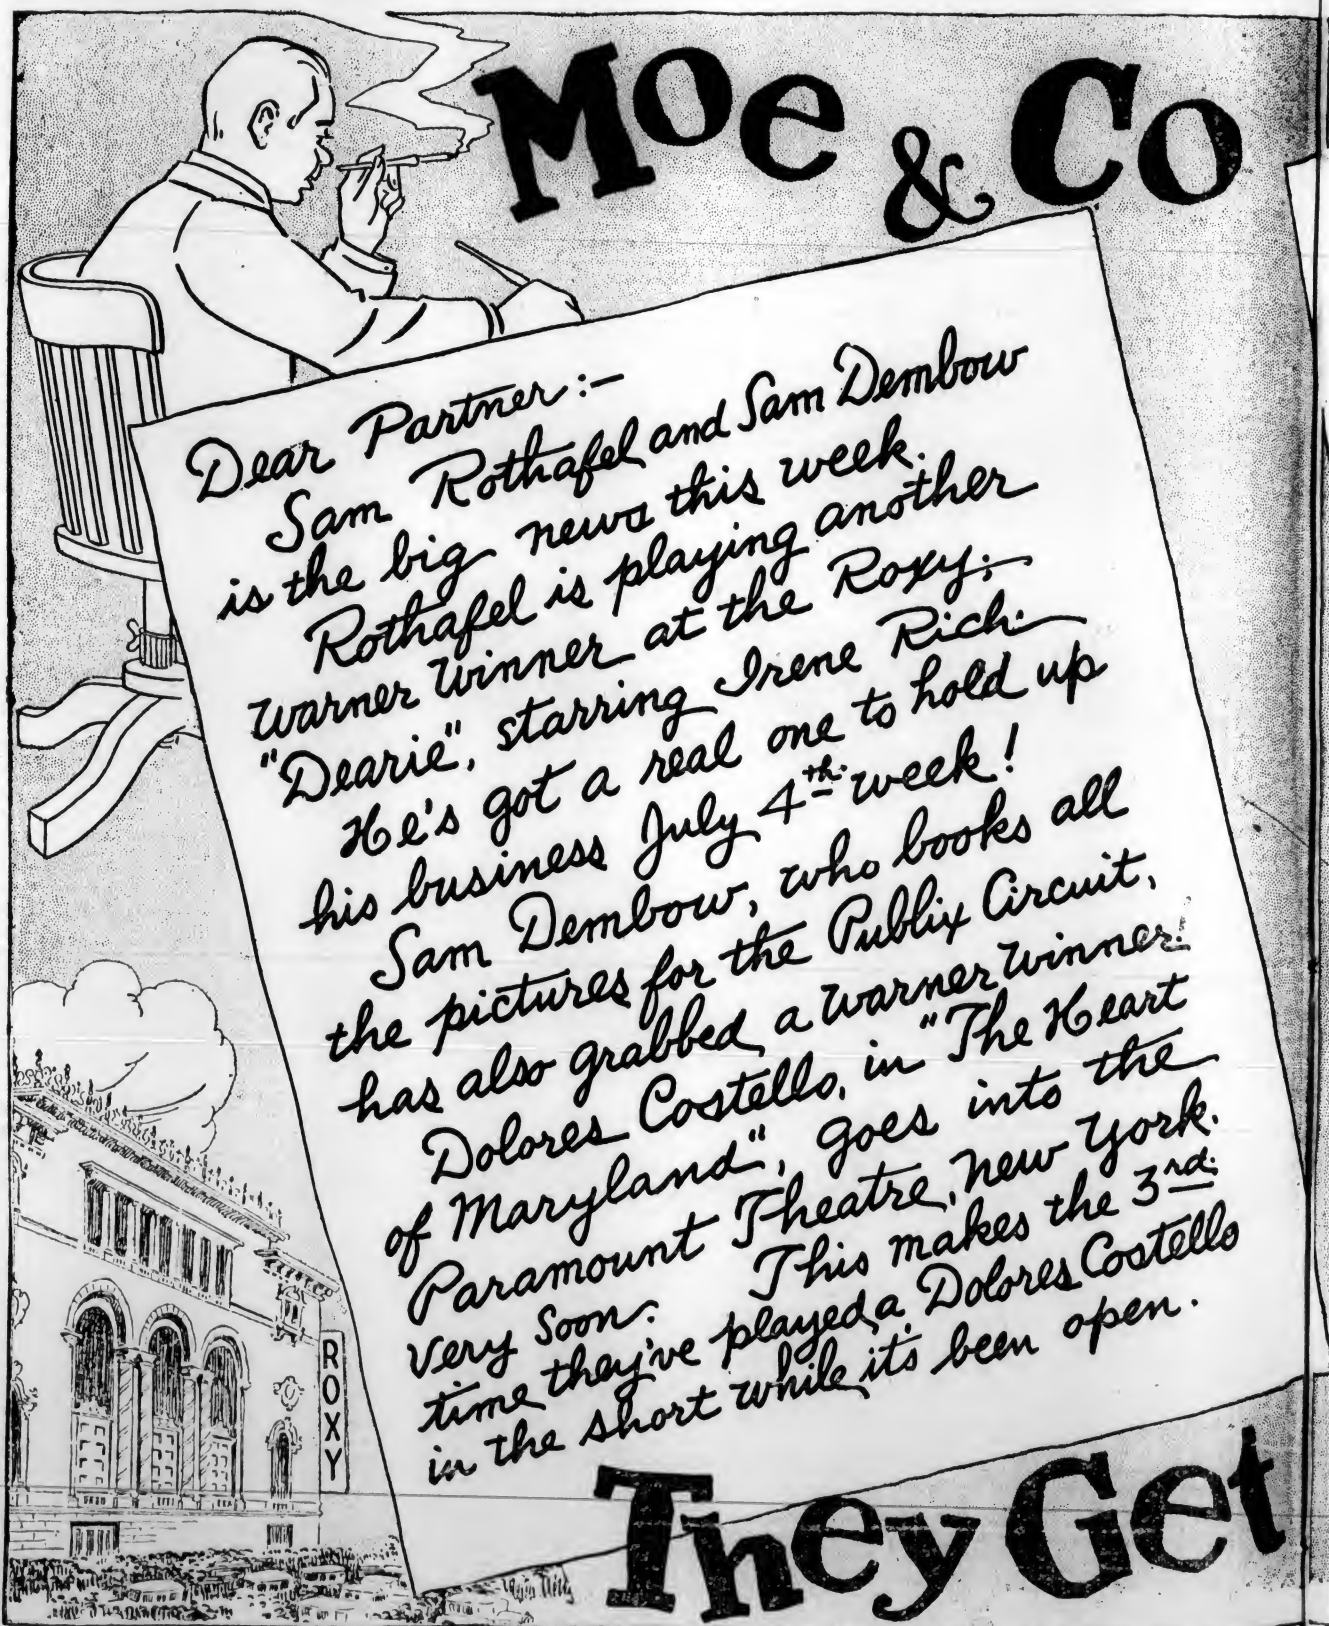 Moe & Co
Dear Partner:-
Sam Rothafel and Sam Dembow
is the big news this week.
Rothafel is playing another
Warner Winner at the Roxy;-
"Dearie", starring Irene Rich.
He's got a real one to hold up
his business July 4th. week!
Sam Dembow, who books all
the pictures for the Publix Circuit,
has also grabbed a Warner Winner!
Dolores Costello, in "The Heart
of Maryland", goes into the
Paramount Theatre, New York.
Very Soon. This makes the 3rd.
time they've played a Dolores Costello
in the short while it's been open.
ROXY
They Get